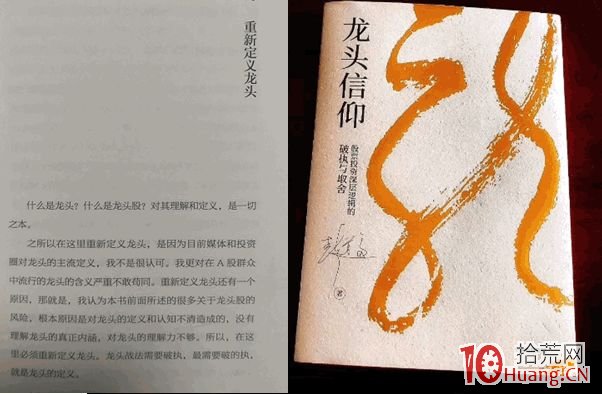 重新定义龙头
什么是龙头？什么是龙头股？对其理解和定义，是一切
之本。
之所以在这里重新定义龙头，是因为目前媒体和投资
圈对龙头的主流定义，我不是很认可。我更对在 A 股群众
中流行的龙头的含义严重不敢苟同。重新定义龙头还有一个
原因，那就是，我认为本书前面所述的很多关于龙头股的
风险，根本原因是对龙头的定义和认知不清造成的，没有
理解龙头的真正内涵，对龙头的理解力不够。所以，在这
里必须重新定义龙头。龙头战法需要破执，最需要破的执，
就是龙头的定义。
龙头信仰
股票投资深层逻辑的
破执与取舍
著
10
拾荒网
Huang.CN